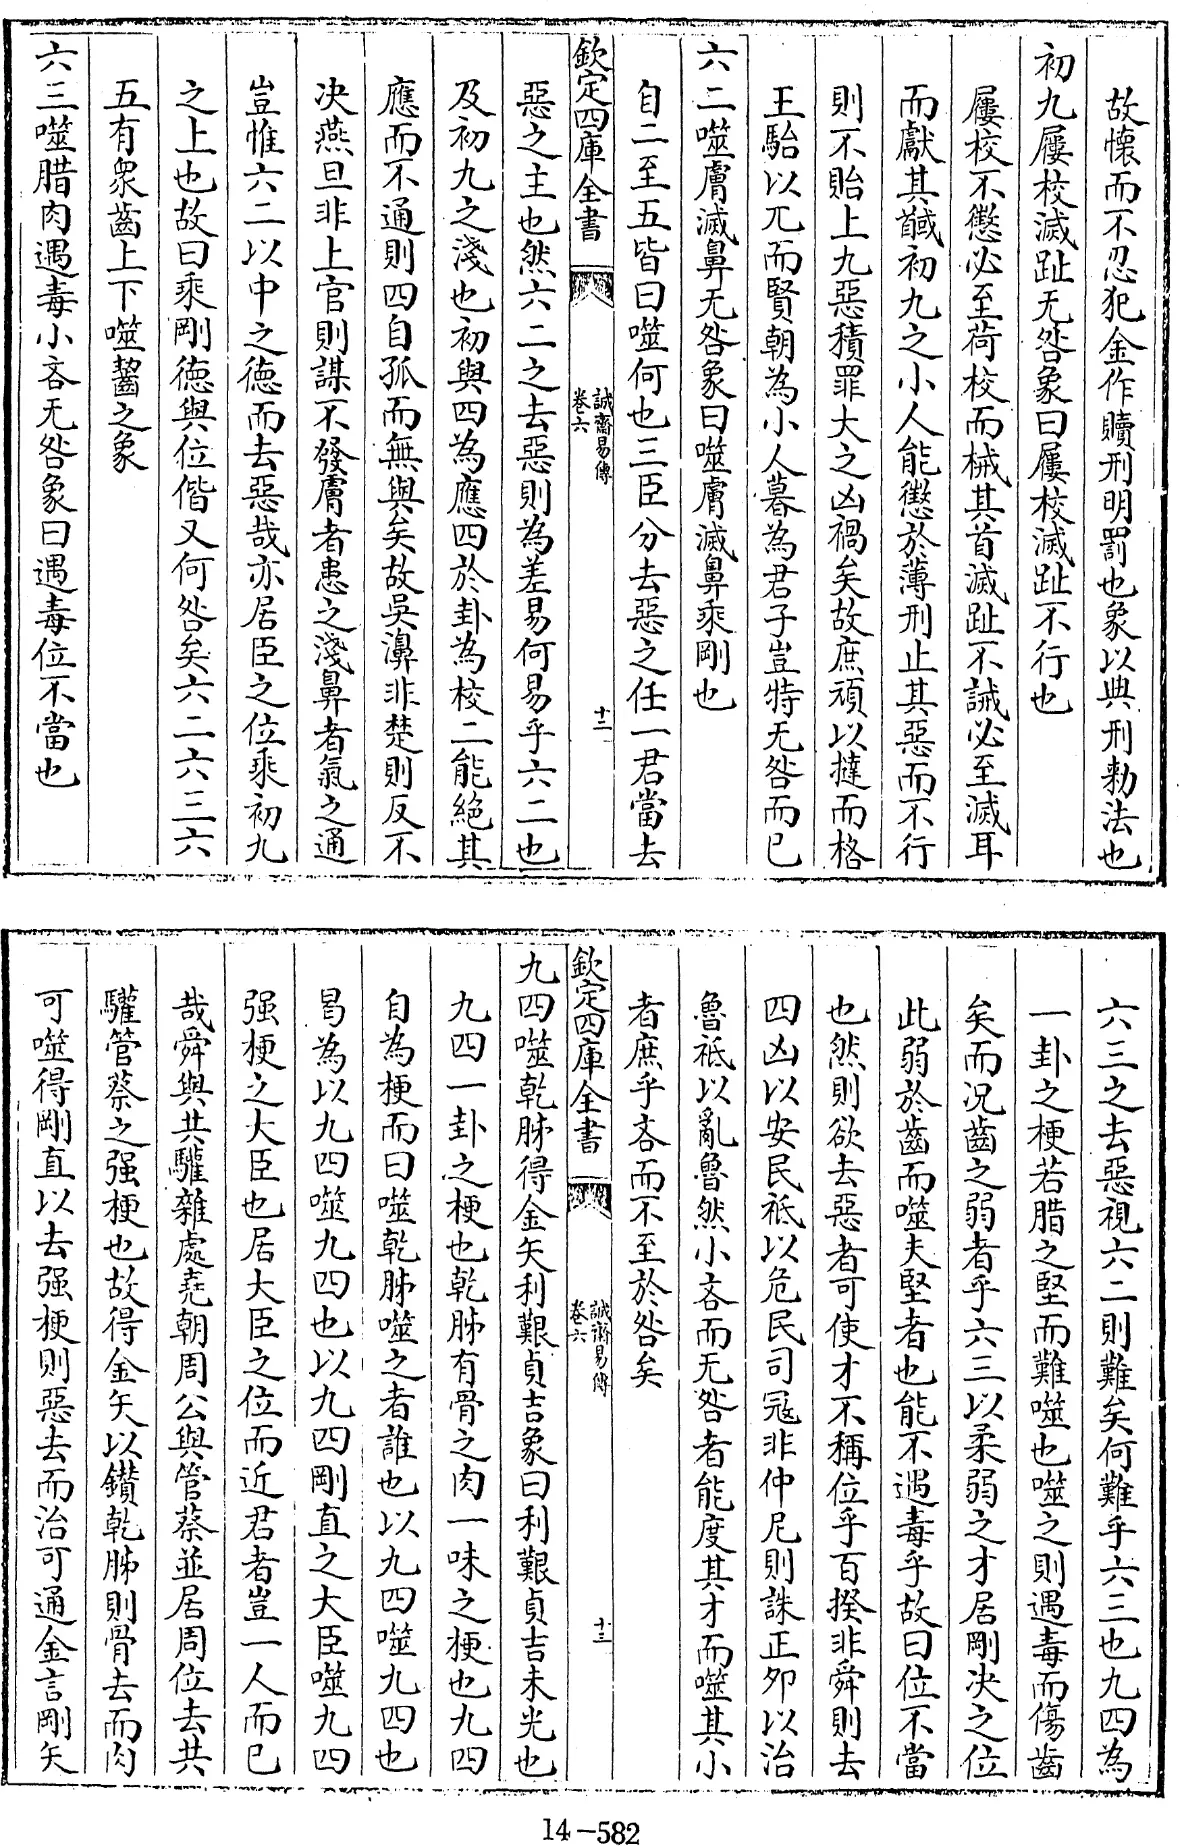 故懐而不忍犯金作贖刑明罰也象以典刑勑法也
初九屨校滅趾无咎象曰屨校滅趾不行也
屨校不懲必至荷校而械其首滅趾不誡必至滅耳
而獻其馘初九之小人能懲於薄刑止其惡而不行
則不貽上九惡積罪大之凶禍矣故庶頑以撻而格
王駘以兀而賢朝為小人暮為君子豈特无咎而已
六二噬膚滅鼻无咎象曰噬膚滅鼻乘剛也
自二至五皆曰噬何也三臣分去惡之任一君當去
欽定四庫全書
誠齋易傳
卷六
十二
惡之主也然六二之去惡則為差易何易乎六二也
及初九之淺也初與四為應四於卦為校二能絶其
應而不通則四自孤而無與矣故吳濞非楚則反不
决燕旦非上官則謀不發膚者患之淺鼻者氣之通
豈惟六二以中之德而去惡哉亦居臣之位乘初九
之上也故曰乘剛德與位偕又何咎矣六二六三六
五有衆齒上下噬齧之象
六三噬腊肉遇毒小吝无咎象曰遇毒位不當也
六三之去惡視六二則難矣何難乎六三也九四為
一卦之梗若腊之堅而難噬也噬之則遇毒而傷齒
矣而况齒之弱者乎六三以柔弱之才居剛决之位
此弱於齒而噬夫堅者也能不遇毒乎故曰位不當
也然則欲去惡者可使才不稱位乎百揆非舜則去
四凶以安民祗以危民司冦非仲尼則誅正卯以治
魯祗以亂魯然小吝而无咎者能度其才而噬其小
者庶乎吝而不至於咎矣
欽定四庫全書
誠齋易傳
卷六
十三
九四噬乾胏得金矢利艱貞吉象曰利艱貞吉未光也
九四一卦之梗也乾胏有骨之肉一味之梗也九四
自為梗而曰噬乾胏噬之者誰也以九四噬九四也
曷為以九四噬九四也以九四剛直之大臣噬九四
强梗之大臣也居大臣之位而近君者豈一人而已
哉舜與共驩雜處堯朝周公與管蔡並居周位去共
驩管蔡之强梗也故得金矢以鑽乾胏則骨去而肉
可噬得剛直以去强梗則惡去而治可通金言剛矢
14-582